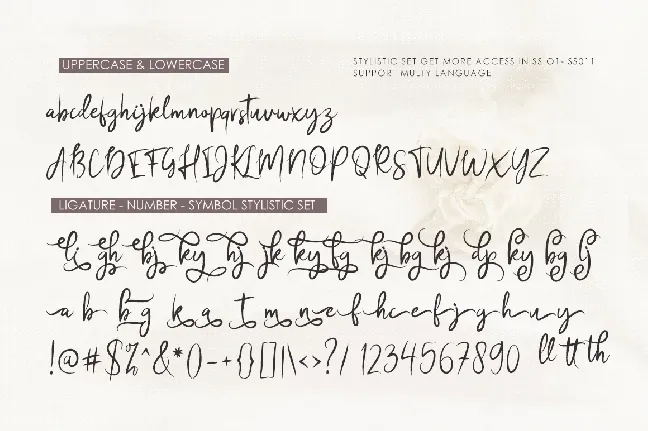 UPPERCASE & LOWERCASE
STYLISTIC SET GET MORE ACCESS IN SS O1- SS011
SUPPORT MULTY LANGUAGE
abcdefghijklmnopqrstuvwxyz
ABCDEFGHIJKLMNOPQRSTUVWXYZ
LIGATURE - NUMBER - SYMBOL STYLISTIC SET
li gh bj ky hj jk ky fg kj bg kj dp ky bg lj
a b b g k q t m n e f h c e f j g h u y
!@#$%^&*()-+{}[]|\<>?/ 1234567890 ll tt th